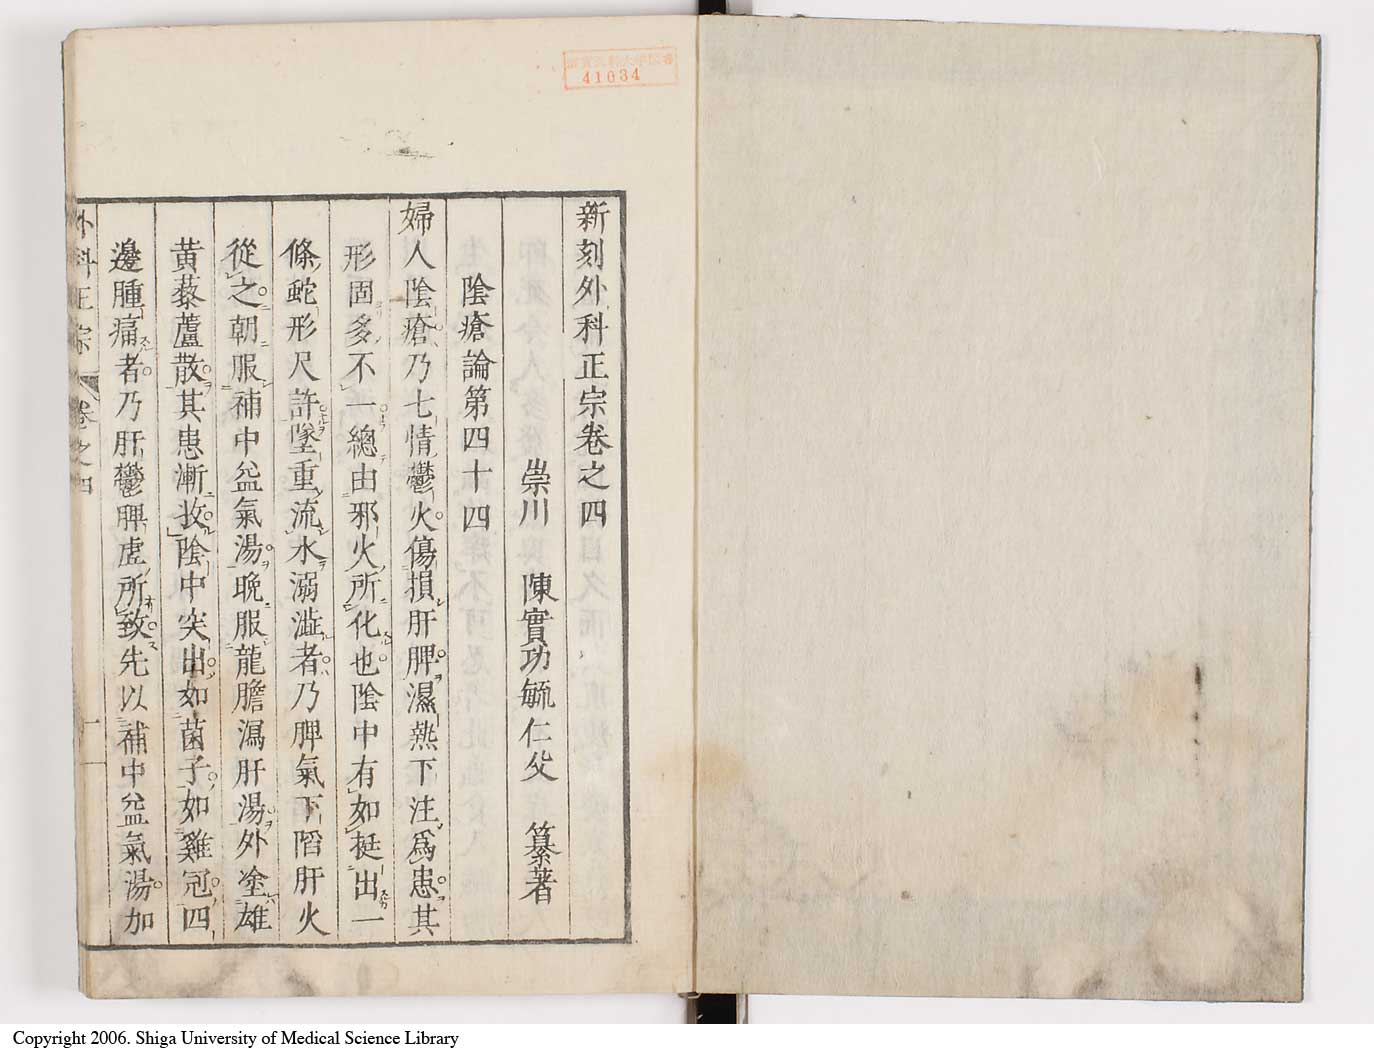 41034
新刻外科正宗卷之四
崇川 陳實功毓仁父 纂著
陰瘡論第四十四
婦人陰瘡乃七情鬱火傷損肝脾濕熱下注爲患其
形固多不一總由邪火所化也陰中有如挺出一
條蛇形尺許墜重流水溺澁者乃脾氣下陷肝火
從之朝服補中益氣湯晚服龍膽瀉肝湯外塗雄
黃藜蘆散其患漸收陰中突出如菌子如雞冠四
邊腫痛者乃肝鬱脾虛所致先以補中益氣湯加
外科正宗 卷之四 一
Copyright 2006. Shiga University of Medical Science Library